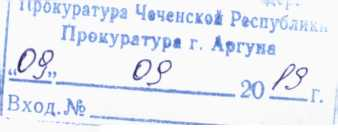 Прокуратура Чеченской Республики
Прокуратура г. Аргуна
„09„ 09 2019 г.
Вход.№